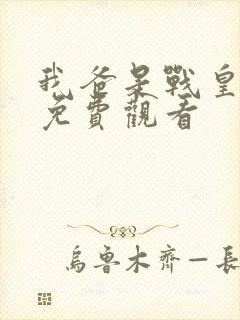 我爸是戰皇
免費觀看
烏魯木齊—長